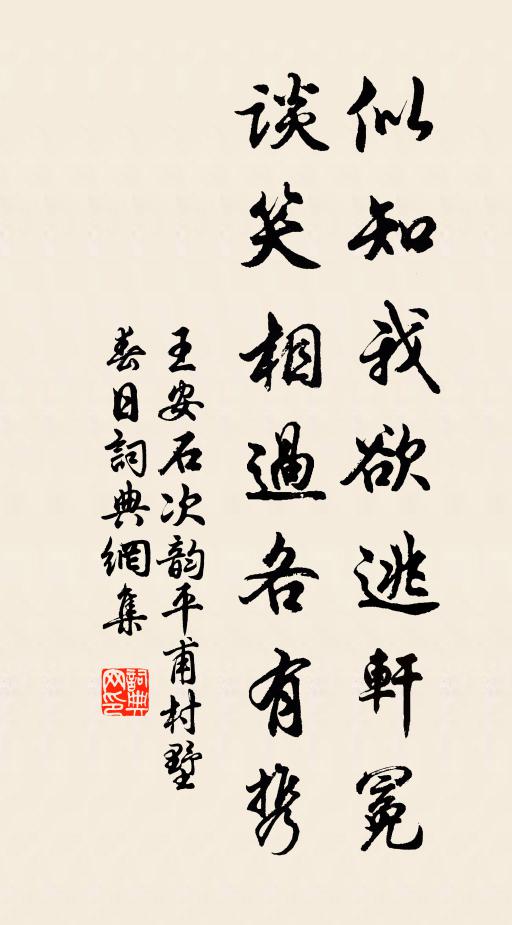 似知我欲逃軒冕
談笑相過各有携
王安石次韵平甫村墅
春日詞典網集
詞典网印